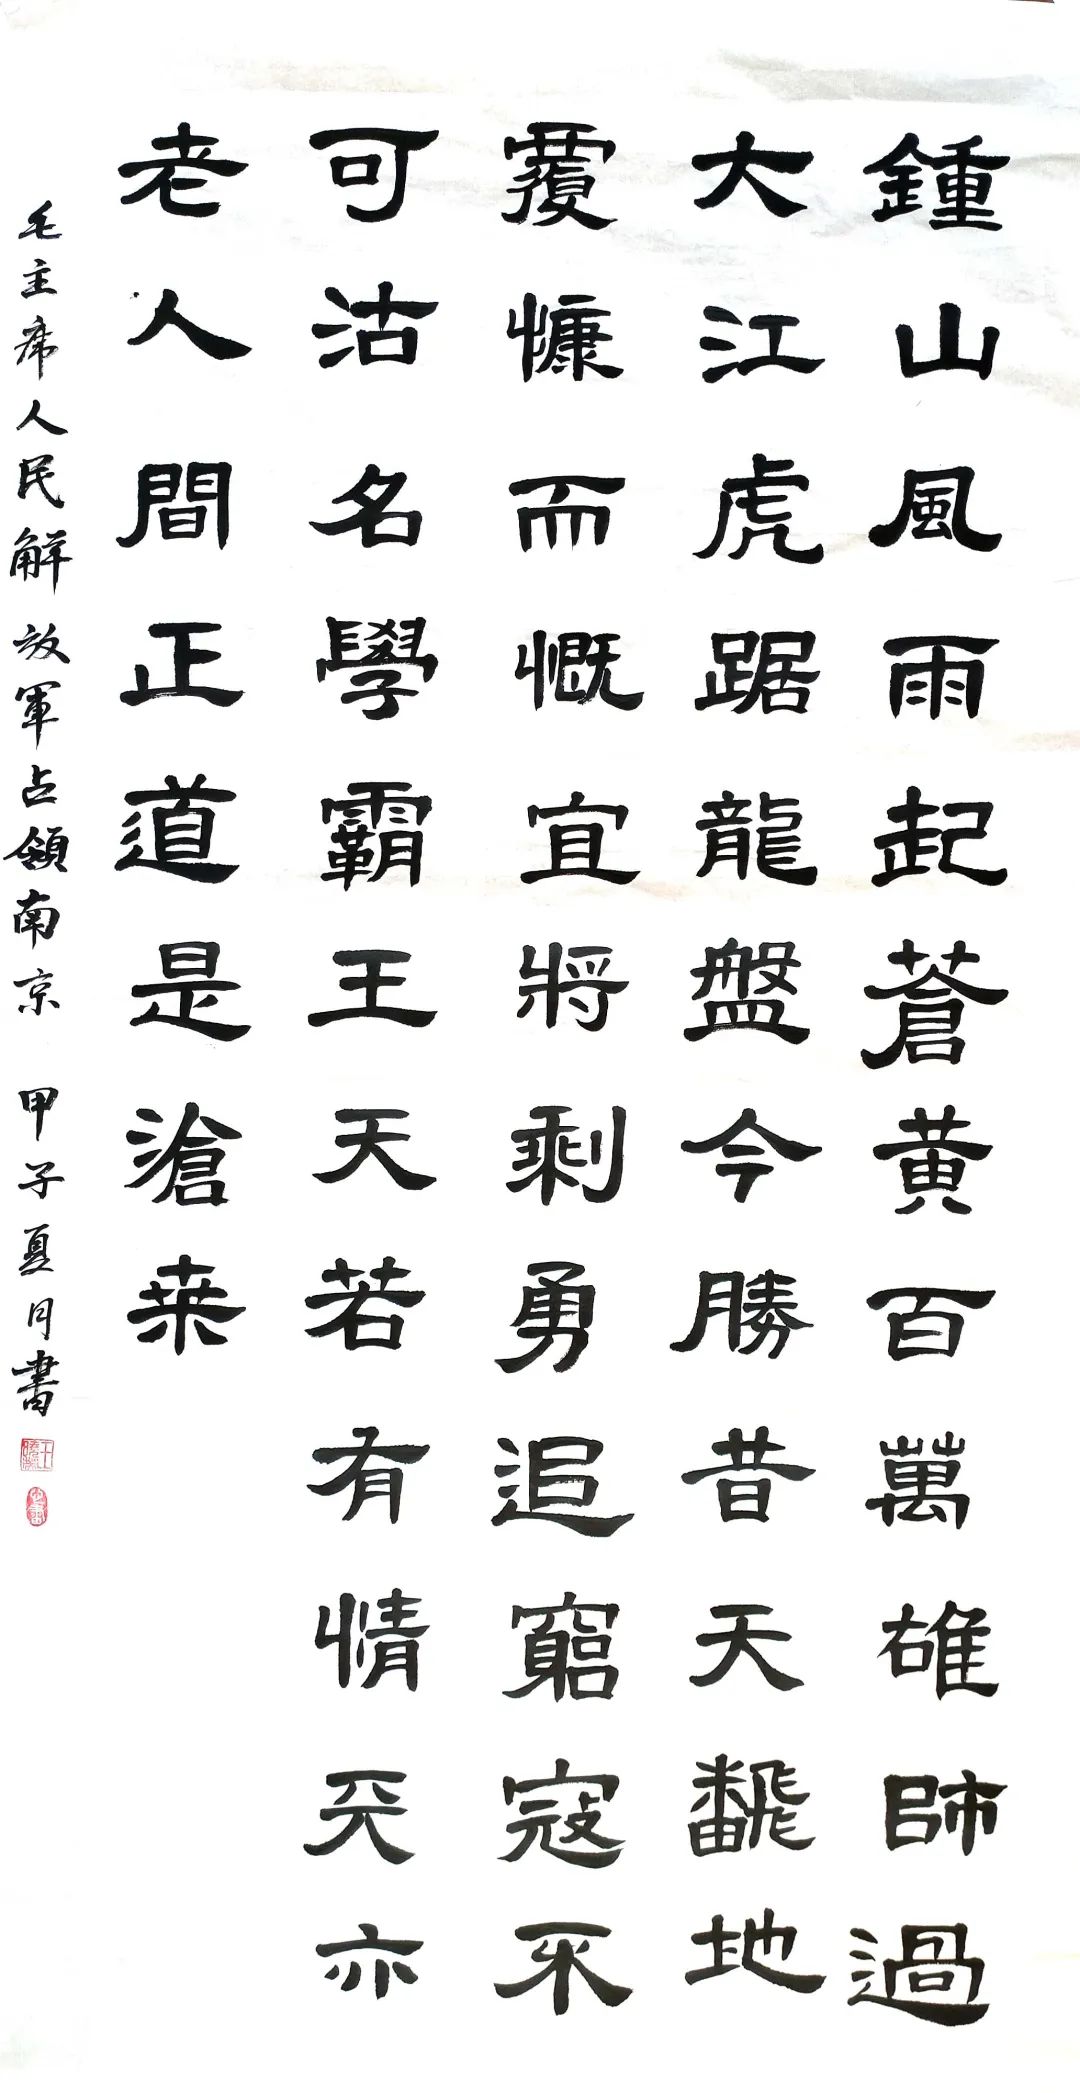 鍾山風雨起蒼黃百萬雄師過
大江虎踞龍盤今勝昔天飜地
覆慷而慨宜將剩勇追窮寇不
可沽名學霸王天若有情天亦
老人間正道是滄桒
毛主席人民解放軍占領南京 甲子夏月書